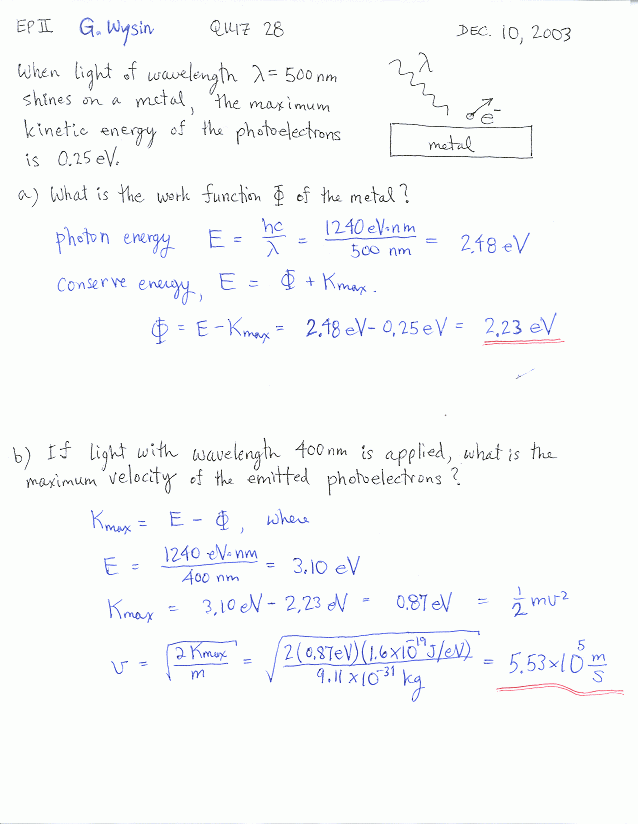 EP II G. Wysin QUIZ 28 DEC. 10, 2003
When light of wavelength λ = 500 nm
shines on a metal, the maximum
kinetic energy of the photoelectrons
is 0.25 eV.
λ
e⁻
metal
a) What is the work function Φ of the metal?
photon energy E = hc/λ = 1240 eV·nm / 500 nm = 2.48 eV
Conserve energy, E = Φ + Kmax.
Φ = E - Kmax = 2.48 eV - 0.25 eV = 2.23 eV
b) If light with wavelength 400 nm is applied, what is the
maximum velocity of the emitted photoelectrons?
Kmax = E - Φ, where
E = 1240 eV·nm / 400 nm = 3.10 eV
Kmax = 3.10 eV - 2.23 eV = 0.87 eV = ½ mv²
v = √(2 Kmax / m) = √(2(0.87eV)(1.6×10⁻¹⁹ J/eV) / 9.11 × 10⁻³¹ kg) = 5.53×10⁵ m/s